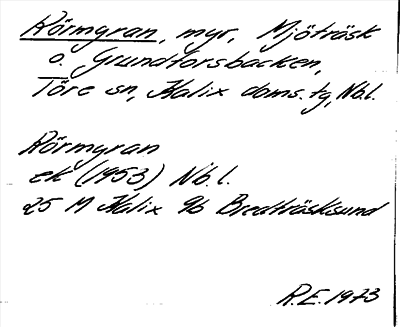 Rörmyran, myr, Mjöträsk
o. Grundforsbacken,
Töre sn, Kalix doms.tg, Nb.l.
Rörmyran
ek (1953) Nb.l.
25 M Kalix 9b Bredträsksund
R.E. 1973